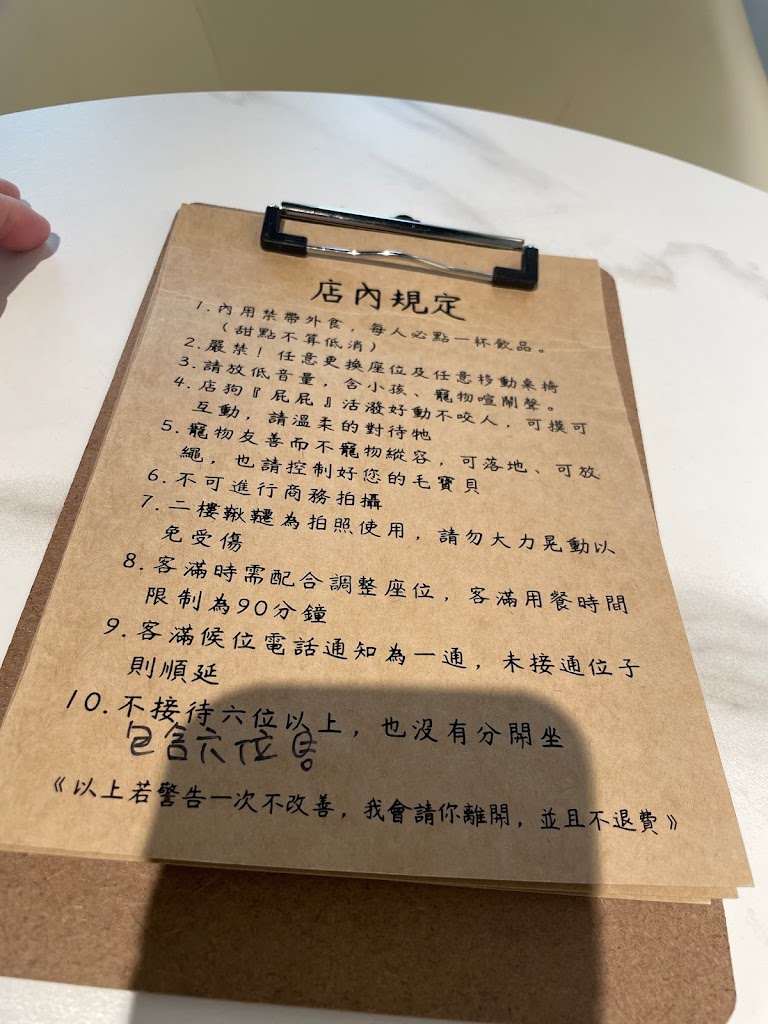 店內規定
1. 內用禁帶外食，每人必點一杯飲品。
（甜點不算低消）
2. 嚴禁！任意更換座位及任意移動桌椅
3. 請放低音量，含小孩、寵物喧鬧聲。
4. 店狗『屁屁』活潑好動不咬人，可摸可
互動，請溫柔的對待牠
5. 寵物友善而不寵物縱容，可落地、可放
繩，也請控制好您的毛寶貝
6. 不可進行商務拍攝
7. 二樓鞦韆為拍照使用，請勿大力晃動以
免受傷
8. 客滿時需配合調整座位，客滿用餐時間
限制為90分鐘
9. 客滿候位電話通知為一通，未接通位子
則順延
10. 不接待六位以上，也沒有分開坐
包含六位客
《以上若警告一次不改善，我會請你離開，並且不退費》